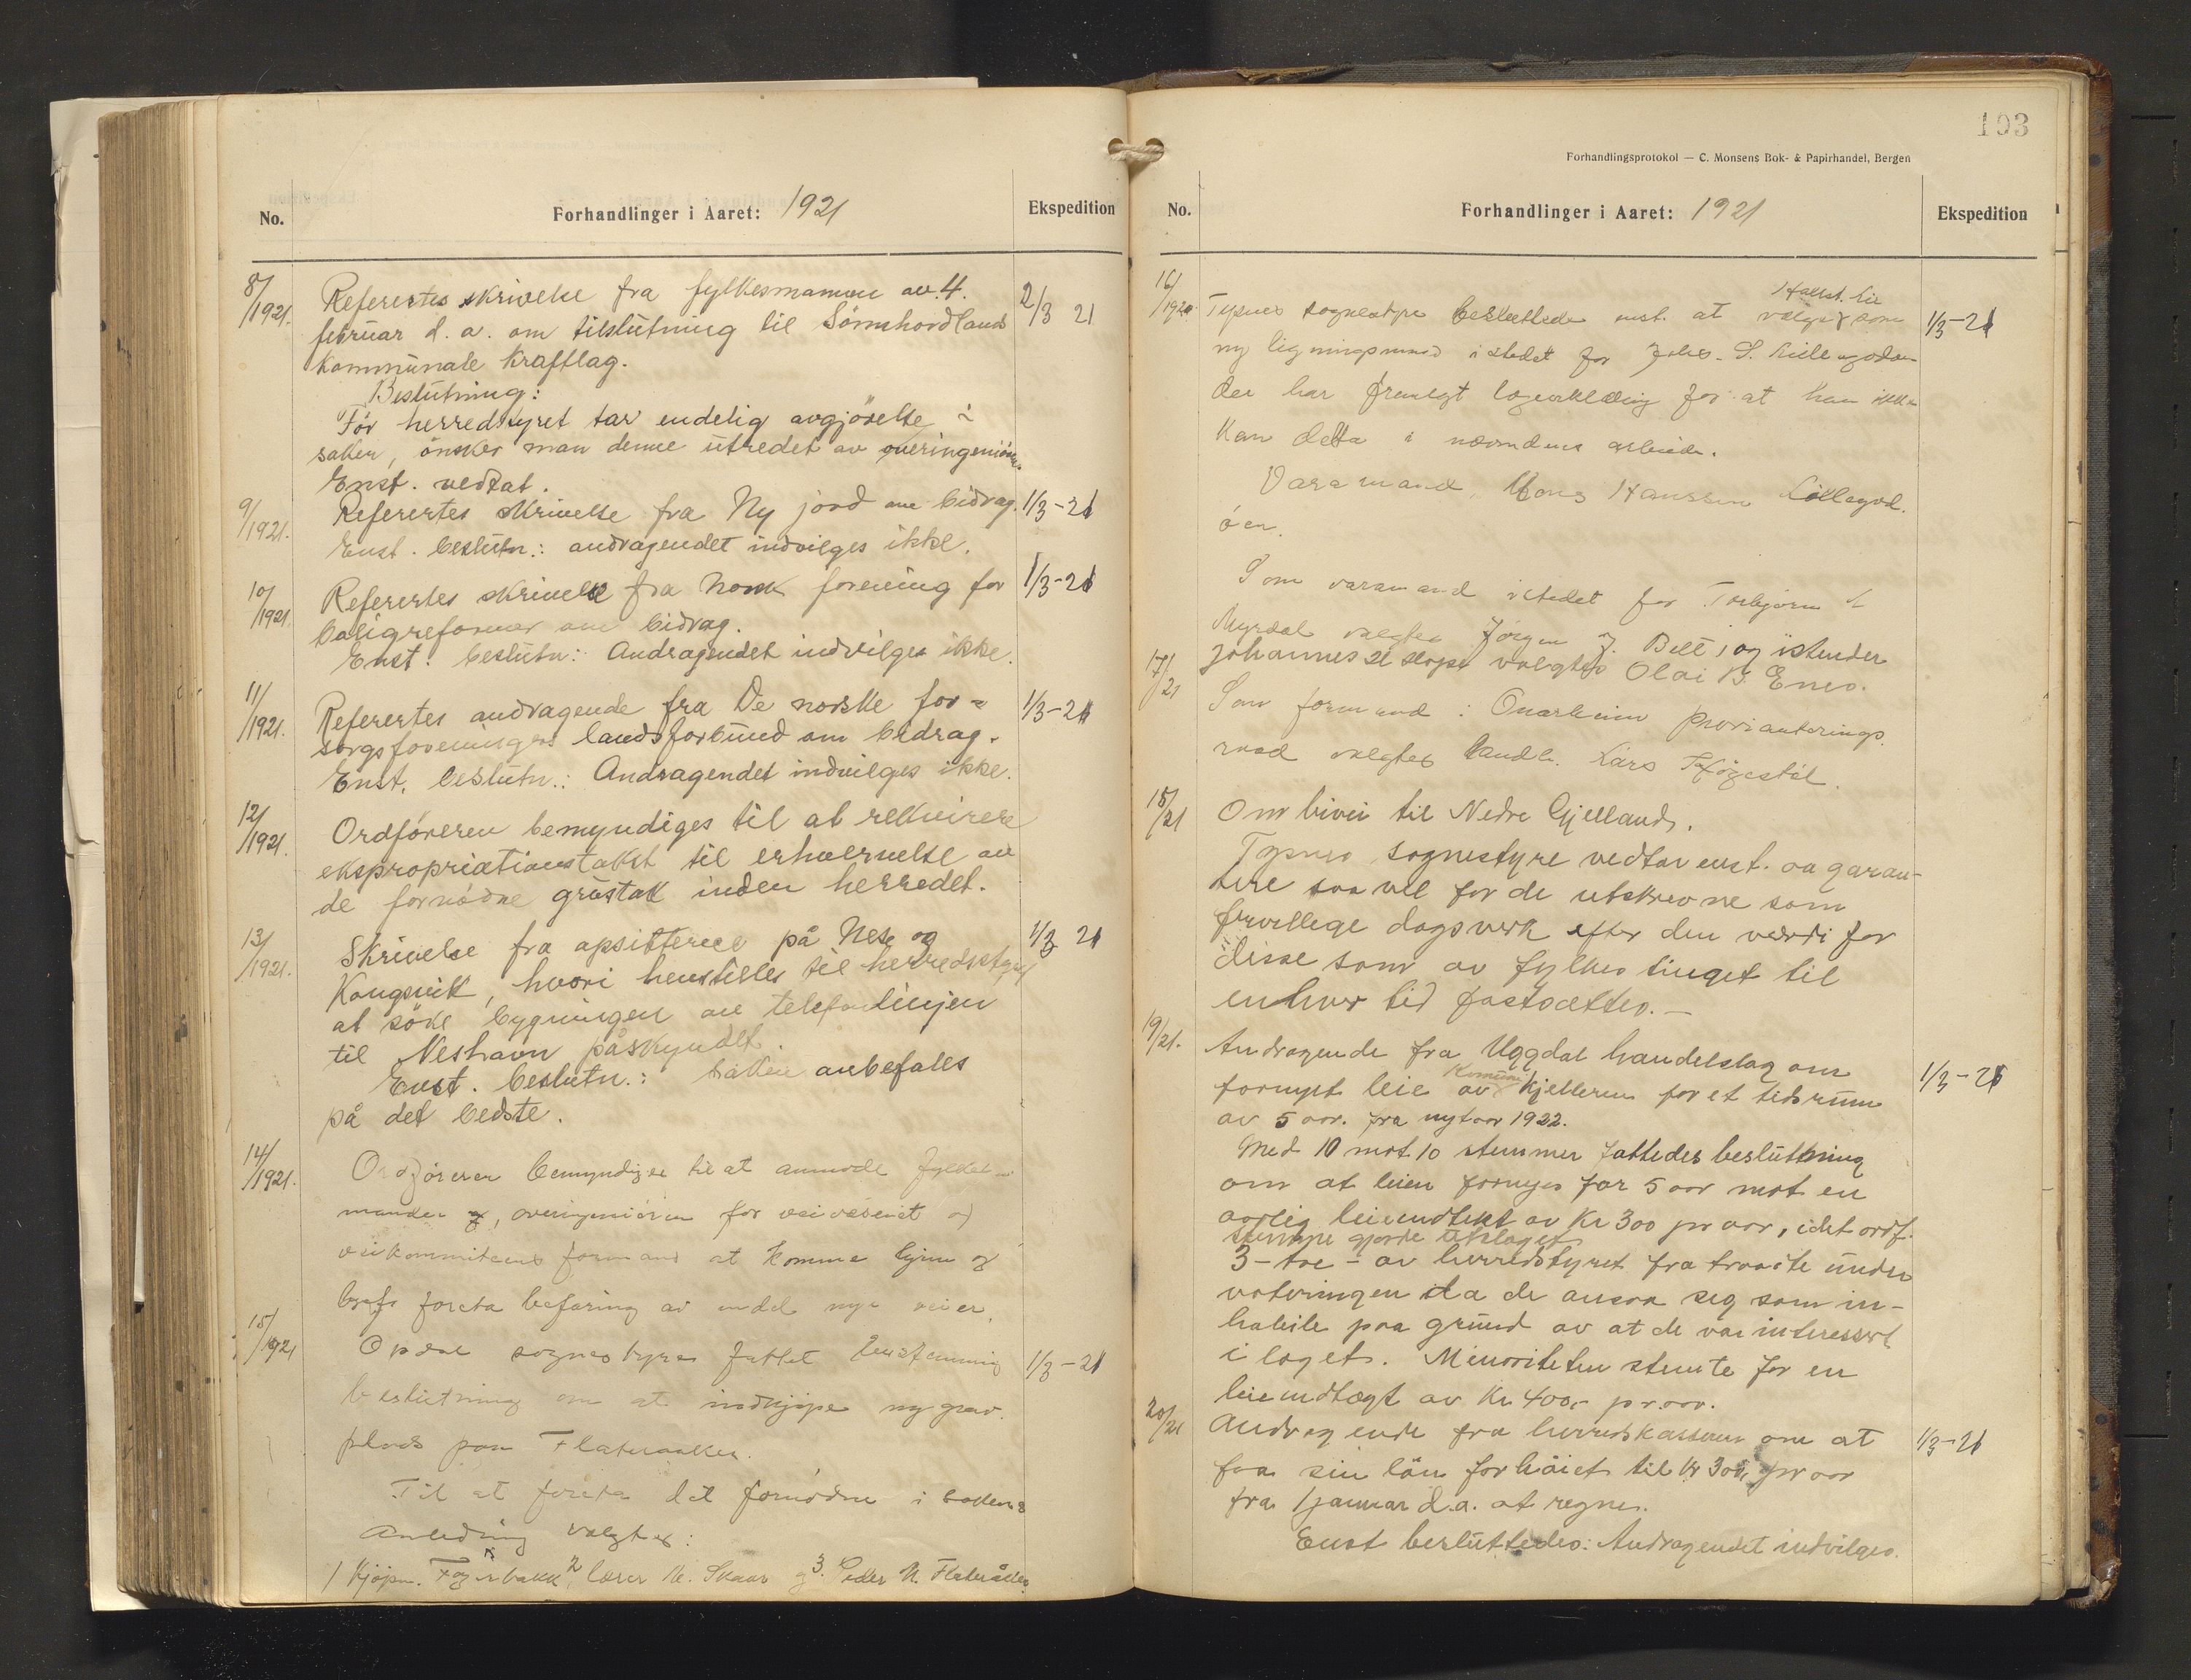 No.
Forhandlinger i Aaret: 1921
Ekspedition
8/1921.
Referertes skrivelse fra fylkesmannen av 4.
2/3 21
februar d. a. om tilslutning til Sönnhordlands
Kommunale Kraftlag.
Beslutning:
För herredstyret tar endelig avgjörelse i
saken, önsker man denne utredet av overingeniören.
Enst. vedtat.
9/1921.
Referertes skrivelse fra Ny jord om bidrag.
1/3-21
Enst. beslutn.: andragendet indvilges ikke.
10/1921
Referertes skrivelse fra Norsk forening for
1/3-21
boligreformer om bidrag.
Enst. beslutn: Andragendet indvilges ikke.
11/1921.
Referertes andragende fra De norske for-
1/3-21
sorgsforeningers landsforbund om bidrag.
Enst. beslutn.: Andragendet indvilges ikke.
12/1921.
Ordföreren bemyndiges til at rekvirere
ekspropriationstakst til erhvervelse av
de fornødne grustak inden herredet.
13/1921.
Skrivelse fra opsitterne på Nese og
1/3 21
Kongsvik, hvori henstilles til herredstyret
at söke bygningen av telefonlinjen
til Neshavn påskyndet.
Enst. beslutn.: Saken anbefales
på det bedste.
14/1921.
Ordföreren bemyndiges til at anmode fylkes-
manden og, overingeniören for veivæsenet og
veikommiteens formand at komme hjem og
foreta befaring av endel nye veier.
15/1921
Opdal sognestyre fattet Enstemmig
1/3-21
beslutning om at indkjöpe ny grav-
plads paa Flateraaker.
Til at foreta det fornødne i sakens
Anledning valgtes:
1 Kjöpm. Fagerbakk 2 lærer M. Skaar og 3. Peder N. Flateråker.
103
Forhandlingsprotokol — C. Monsens Bok- & Papirhandel, Bergen
No.
Forhandlinger i Aaret: 1921
Ekspedition
16/1921
Hallst. Lie
Tysnes sognestyre besluttede enst. at vælge som
1/3-21
ny ligningsmand istedet for Johs. S. Lillegodøen
der har fremlagt lægeerklæring for at han ikke
kan delta i nævndens arbeide.
Varamand, Mons Hanssen Lillegod-
öen.
Som varamand istedet for Torbjörn
Myrdal valgtes Jörgen J. og istenden
17/21
Johannes valgtes Olai B. Enes.
Som formand i Onarheim Provianterings-
raad valgtes landh. Lars Högestöl.
18/21
Om bivei til Nedre Gjelland.
Tysnes sognestyre vedtar enst. aa garan-
tere saa vel for de utskrevne som
frivellege dagsverk efter den værdi for
disse som av fylkes tinget til
enhver tid fastsættes.—
19/21.
Andragende fra Uggdal handelslag om
1/3-21
fornyet leie av Komune kjelleren for et tidsrum
av 5 aar. fra nytaar 1922.
Med 10 mot 10 stemmer fattedes beslutning
om at leien fornyes for 5 aar mot en
aarlig leieindtekt av Kr 300 pr aar, idet ordf.
stemme gjorde utslaget
3-tre- av herredstyret fratraadte under
voteringen da de ansaa seg som in-
habile paa grund av at de var interessert
i laget. Minoriteten stemte for en
leieindtægt av Kr. 400,- pr. aar.
20/21
Andragende fra herredskassereren om at
1/3-21
faa sin lön forhöiet til Kr 300, pr aar
fra 1 januar d.a. at regne.
Enst besluttedes: Andragendet indvilges.